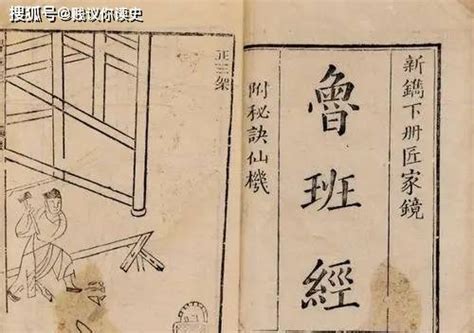 搜狐号@贱议你读史
新鐫下册匠家鏡
魯班經
附秘訣仙機
正三架